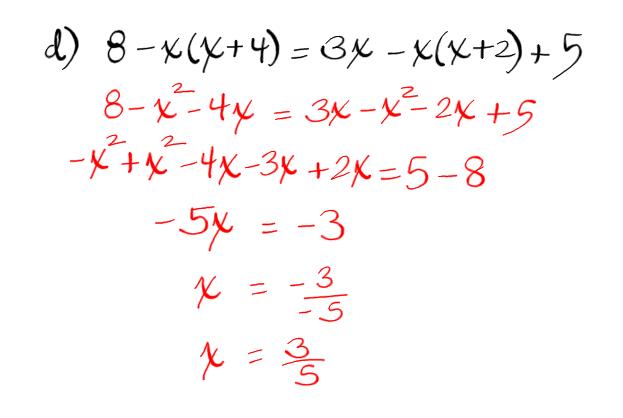 d) 8 - x(x+4) = 3x - x(x+2) + 5
8 - x² - 4x = 3x - x² - 2x + 5
-x² + x² - 4x - 3x + 2x = 5 - 8
-5x = -3
x = -3/-5
x = 3/5